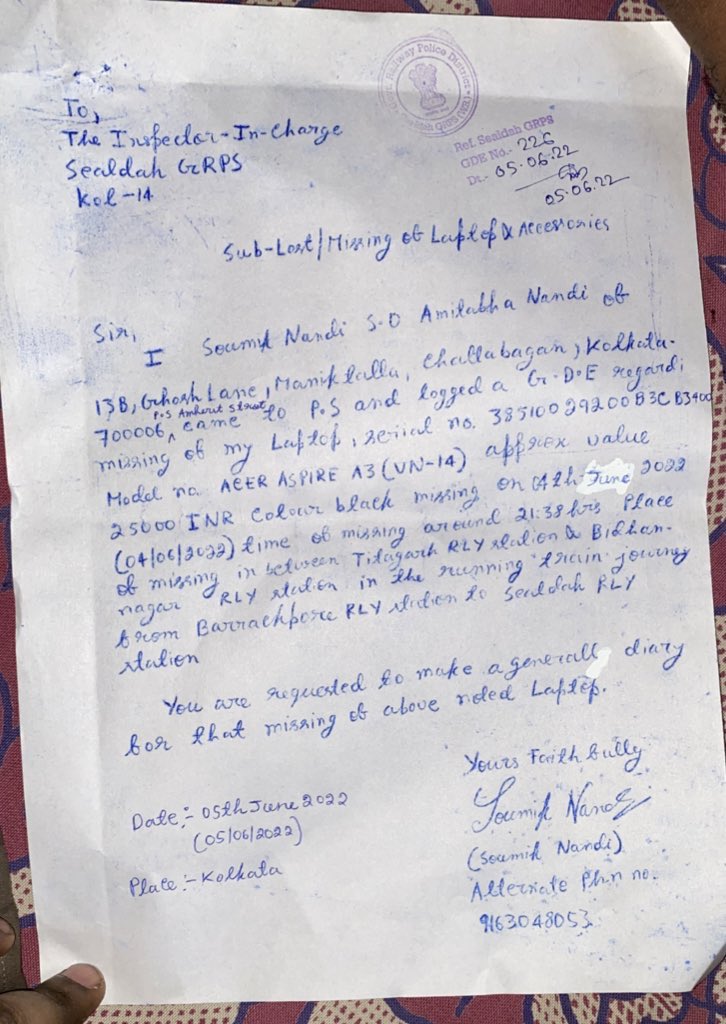 Govt. Railway Police District
Sealdah GRPS
Ref. Sealdah GRPS
GDE No.- 226
Dt.- 05.06.22
05.06.22
To,
The Inspector-In-Charge
Sealdah GRPS
Kol-14
Sub-Lost/Missing of Laptop & Accessories
Sir,
I Soumik Nandi S.O Amitabha Nandi of
13B, Ghosh Lane, Maniktalla, Challabagan, Kolkata-
P.S Amherst Street
700006, came to P.S and logged a G.D.E regardi
missing of my Laptop, serial no. 38510029200B3CB3400
Model no. ACER ASPIRE A3 (UN-14) approx value
25000 INR Colour black missing on 04th June 2022
(04/06/2022) time of missing around 21:38 hrs Place
of missing in between Titagarh RLY station & Bidhan-
nagar RLY station in the running train journey
from Barrackpore RLY station to Sealdah RLY
station
You are requested to make a generall diary
for that missing of above noted Laptop.
Yours Faithfully
Soumik Nandi
(Soumik Nandi)
Alternate Phn no.
9163048053
Date:- 05th June 2022
(05/06/2022)
Place:- Kolkata